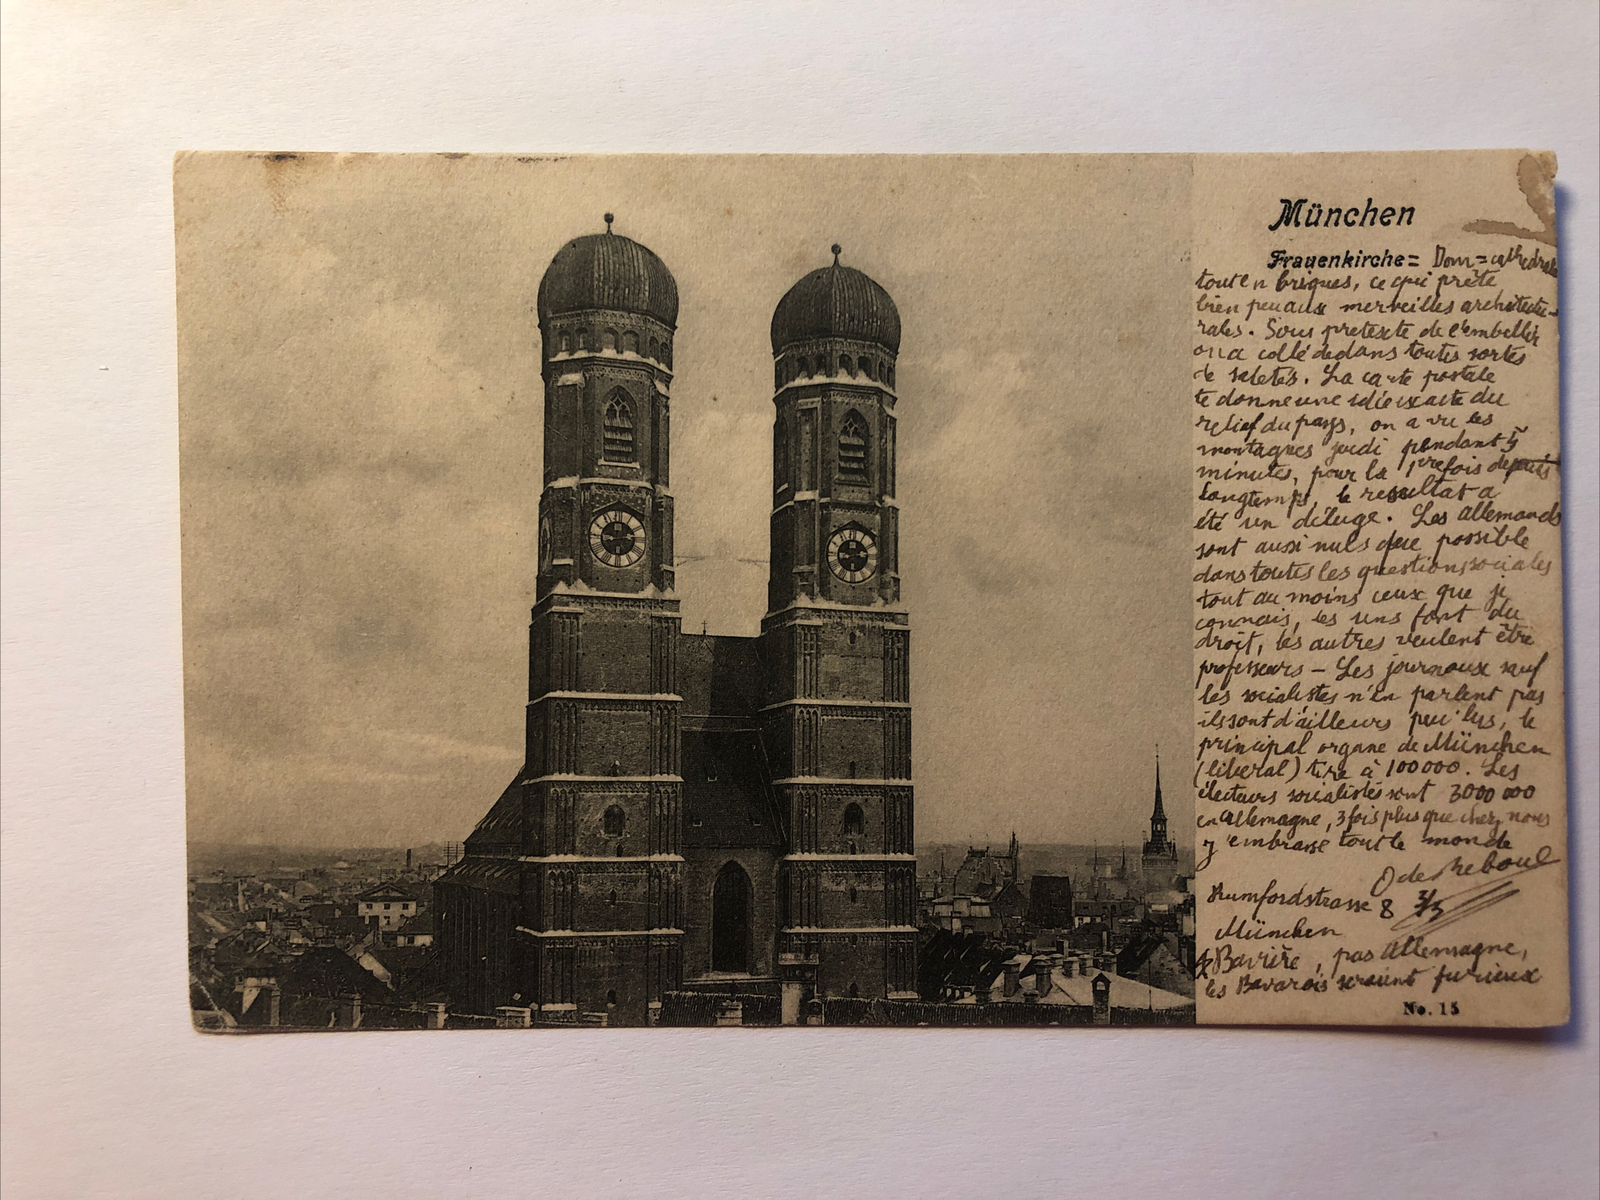 München
Frauenkirche = Dom = cathédrale
tout en briques, ce qui prête
bien peu aux merveilles architectu-
rales. Sous pretexte de l'embellir
on a collé dedans toutes sortes
de saletés. La carte postale
te donne une idée exacte du
relief du pays, on a vu les
montagnes jeudi pendant 5
minutes, pour la 1re fois depuis
longtemps, le resultat a
été un déluge. Les allemands
sont aussi nuls que possible
dans toutes les questions sociales
tout au moins ceux que je
connais, les uns font du
droit, les autres veulent être
professeurs - Les journaux sauf
les socialistes n'en parlent pas
ils sont d'ailleurs peu lus, le
principal organe de München
(liberal) tire à 100000. Les
électeurs socialistes sont 3000000
en allemagne, 3 fois plus que chez nous
j'embrasse tout le monde
O de Reboul
Rumfordstrasse 8 3/3
München
Bavière, pas Allemagne,
les Bavarois seraient furieux
No. 15